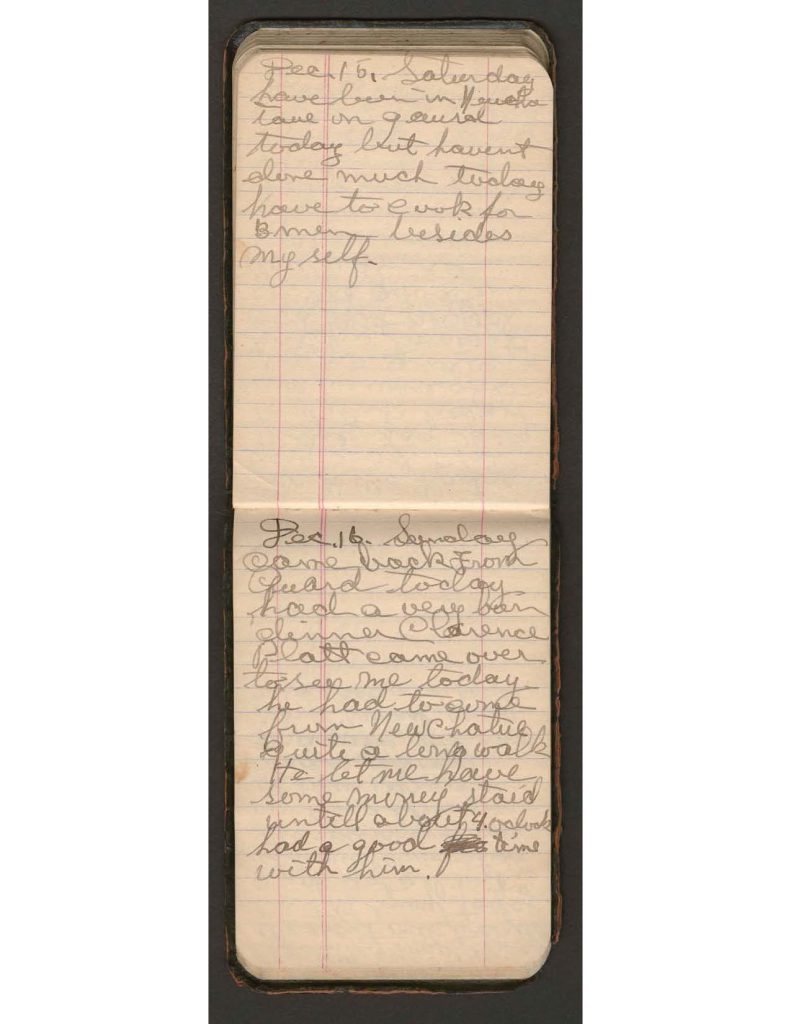 Dec. 15. Saturday
have been in Neucha
taue on gaurd
today but havent
done much today
have to cook for
3 men besides
my self.
Dec. 16. Sunday
Came back From
Guard today
had a very
dinner Clarence
Platt came over
to see me today
he had to come
from Newchatue
quite a long walk
He let me have
some money staid
untill about 4. oclock
had a good time
with him.